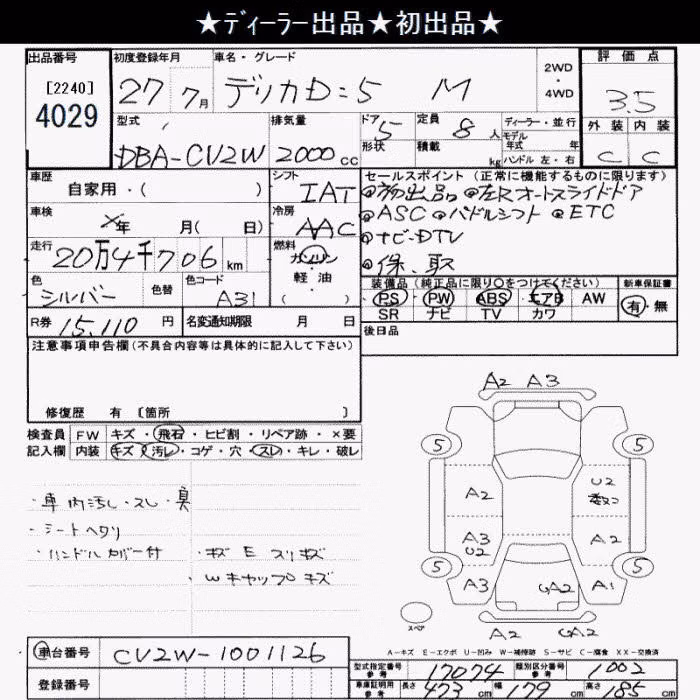 ★ディーラー出品★初出品★
出品番号 初度登録年月 車名・グレード 評価点
[2240]
4029
27 7月 デリカD:5 M
2WD
・
4WD
3.5
型式 排気量 ドア 定員 ディーラー・並行
DBA-CV2W 2000cc
5 8人
モデル年式 年
形状 積載 kg ハンドル 左・右
外装 内装
C C
車歴
自家用・( )
シフト
IAT
セールスポイント(正常に機能するものに限ります)
◎初出品 ◎左Rオートスライドドア
◎ASC ◎パドルシフト ◎ETC
◎ナビ・DTV
◎保、取
車検 ×年 月( 日)
冷房
AAC
走行
20万4千706km
燃料
ガソリン・軽油・( )
色 シルバー 色替 色コード A31
装備品(純正品に限り○をつけてください) 新車保証書
PS PW ABS エアB AW 有・無
SR ナビ TV カワ
R券 15,110円 名変通知期限 月 日
後日品
注意事項申告欄(不具合内容等は具体的に記入して下さい)
修復歴 有 [箇所 ]
検査員 FW キズ・飛石・ヒビ割・リペア跡・×要
記入欄 内装 キズ・汚レ・コゲ・穴・スレ・キレ・破レ
・車内汚し・スレ・臭
・シートヘタリ
・ハンドルカバー付 ・キズ E スリキズ
・Wキャップ キズ
A2 A3
5 5
A2 U2
A3 U2 A2
5 5
A3 GA2 A1
スペア
A2 GA2
A-キズ E-エクボ U-凹み W-補修跡 S-サビ C-腐食 XX-交換済
車台番号 CV2W-1001126
登録番号
型式指定番号 参考 17074 類別区分番号 参考 1002
車庫証明用 参考 長さ 473cm 幅 179cm 高さ 185cm